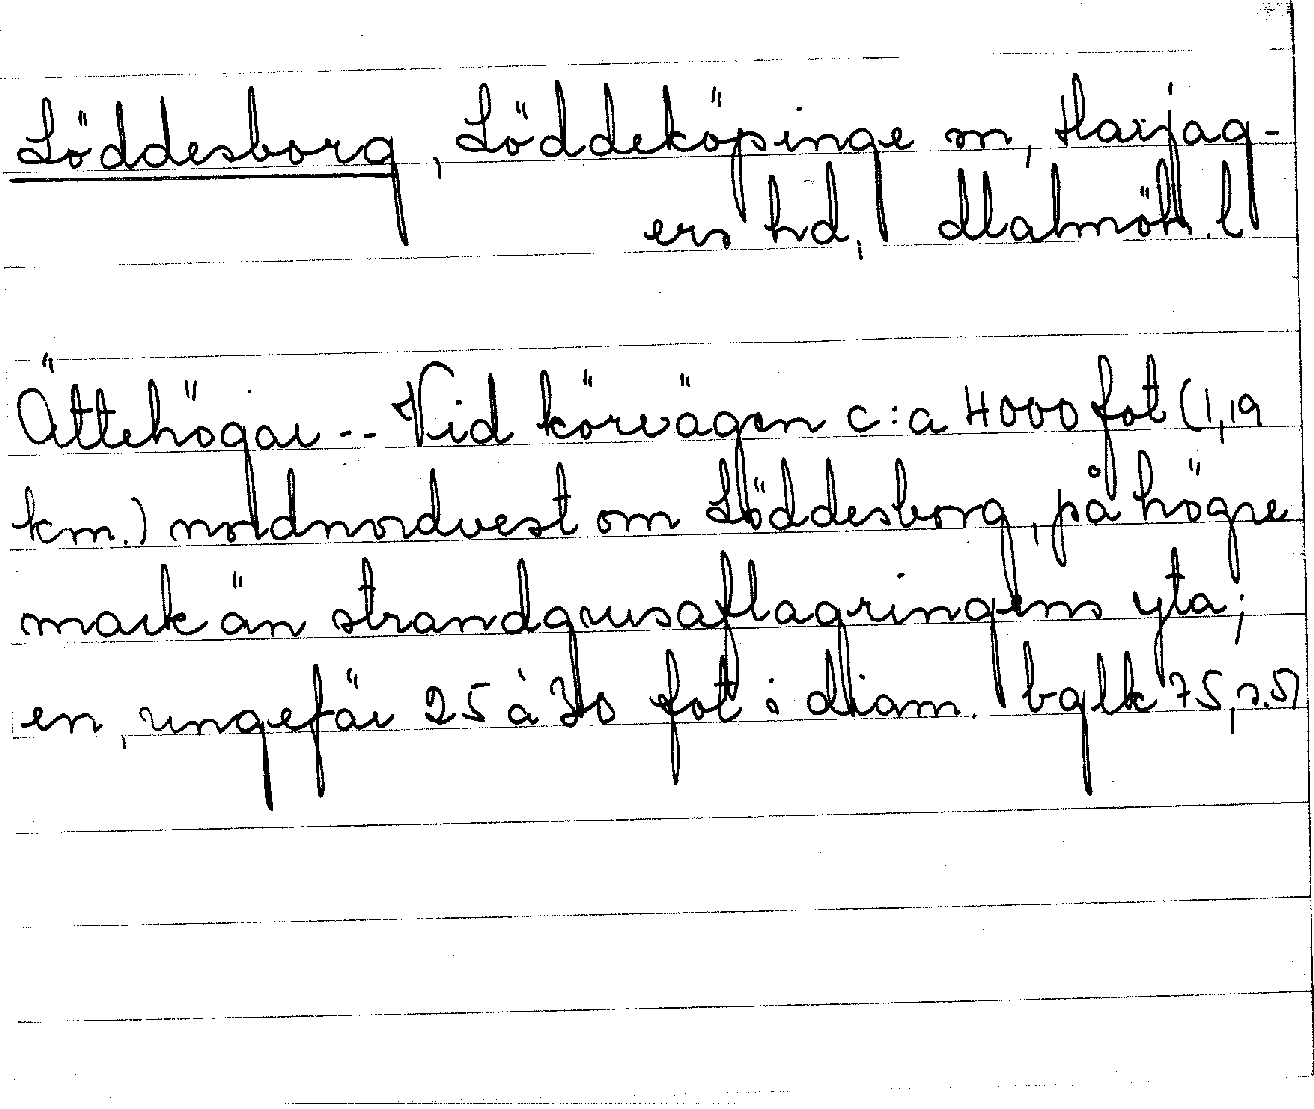 Löddesborg, Löddeköpinge sn, Harjag-
ers hd, Malmöh. l
Ättehögar -- Vid körvägen c:a 4000 fot (1,19
km.) nordnordvest om Löddesborg, på högre
mark än strandgrusaflagringens yta;
en, ungefär 25 à 30 fot i diam. bglk 75, s.51